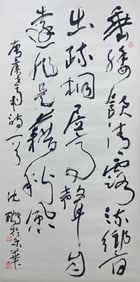 垂緌飲清露流響
出疏桐居高聲自
遠非是藉秋風
唐虞世南詩一首
沈鹏於京華